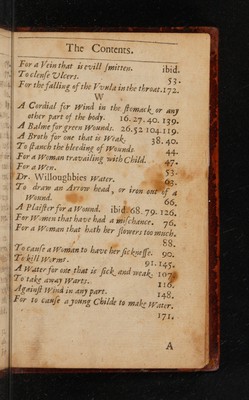 The Contents.
For a Vein that is evill smitten. ibid.
To clense Vlcers. 53.
For the falling of the Vvula in the throat. 172.
W
A Cordial for Wind in the stomack or any
other part of the body. 16.27.40. 139.
A Balme for green Wounds. 26.52 104.119.
A Broth for one that is Weak. 38.40.
To stanch the bleeding of Wounds 44.
For a Woman travailing with Child. 47.
For a Wen. 53.
Dr. Willoughbies Water. 63.
To draw an Arrow head, or iron out of a
Wound. 66.
A Plaister for a Wound. ibid. 68. 79. 126.
For Women that have had a mischance. 76.
For a Woman that hath her flowers too much.
88.
To cause a Woman to have her sicknesse. 90.
To kill Worms. 91. 145.
A Water for one that is sick and weak. 107
To take away Warts. 116.
Against Wind in any part. 148.
For to cause a young Childe to make Water.
171.
A